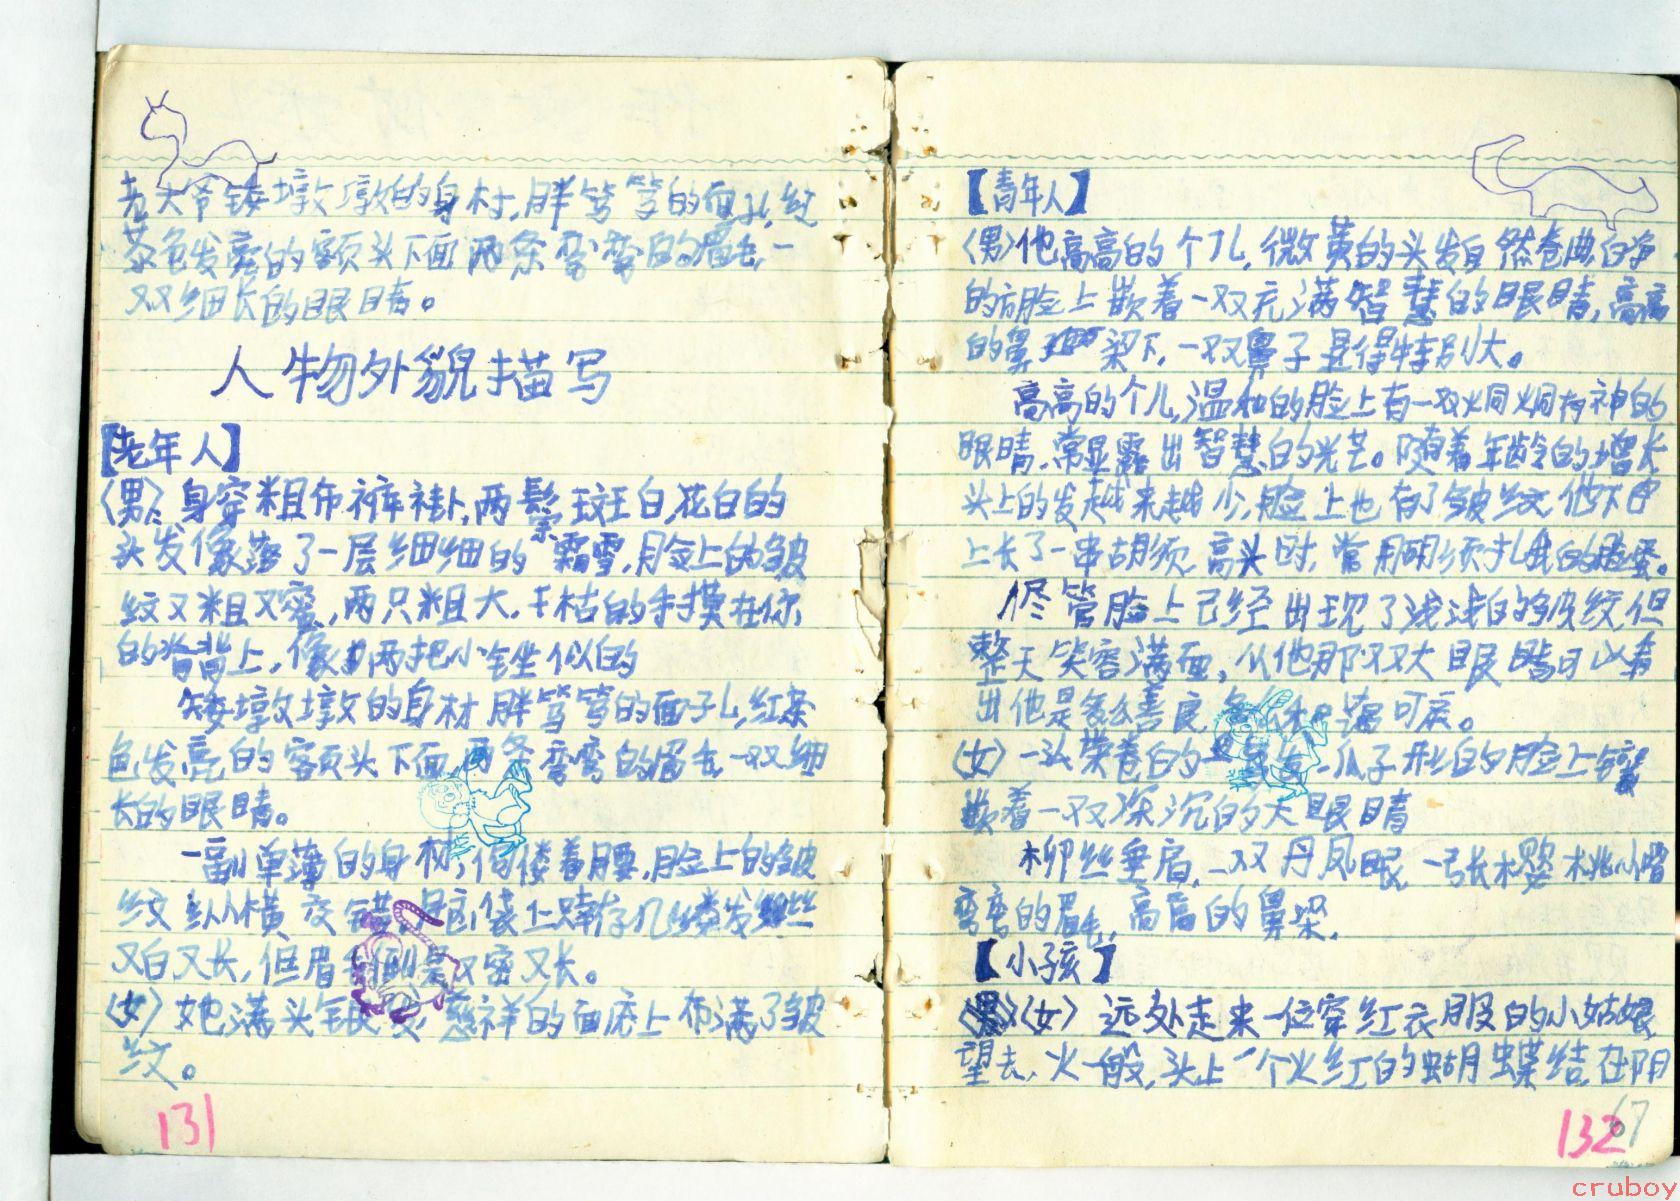 老大爷矮墩墩的身材,胖笃笃的面孔,红
茶色发亮的额头下面两条弯弯的眉毛,一
双细长的眼睛。
人物外貌描写
【老年人】
〈男〉身穿粗布裤褂,两鬓斑白,花白的
头发像落了一层细细的霜雪,脸上的皱
纹又粗又密,两只粗大,干枯的手摸在你
的背上,像两把小锉似的
矮墩墩的身材胖笃笃的面子孔,红茶
色发亮的额头下面两条弯弯的眉毛一双细
长的眼睛。
一副单薄的身材,佝偻着腰,脸上的皱
纹纵横交错,脑袋上只剩存几缕发丝
又白又长,但眉毛倒是又密又长。
〈女〉她满头银发,慈祥的面庞上布满了皱
纹。
131
【青年人】
〈男〉他高高的个儿,微黄的头发自然卷曲,白净
的方脸上嵌着一双充满智慧的眼睛,高高
的鼻梁下,一双鼻子显得特别大。
高高的个儿,温和的脸上有一双炯炯有神的
眼睛,常显露出智慧的光芒。随着年龄的增长
头上的发越来越少,脸上也有了皱纹,他下巴
上长了一串胡须,高头时,常用胡须扎我的脸蛋。
尽管脸上已经出现了浅浅的皱纹但
整天笑容满面,从他那双大眼睛可以看
出他是多么善良,多么和蔼可亲。
〈女〉一头带卷的 瓜子形的脸上镶
嵌着一双深沉的大眼睛
柳丝垂肩,一双丹凤眼,一张樱桃小嘴
弯弯的眉毛,高高的鼻梁,
【小孩】
〈男〉〈女〉远处走来一位穿红衣服的小姑娘
望去,火一般,头上一个火红的蝴蝶结,在阴
132
67
cruboy